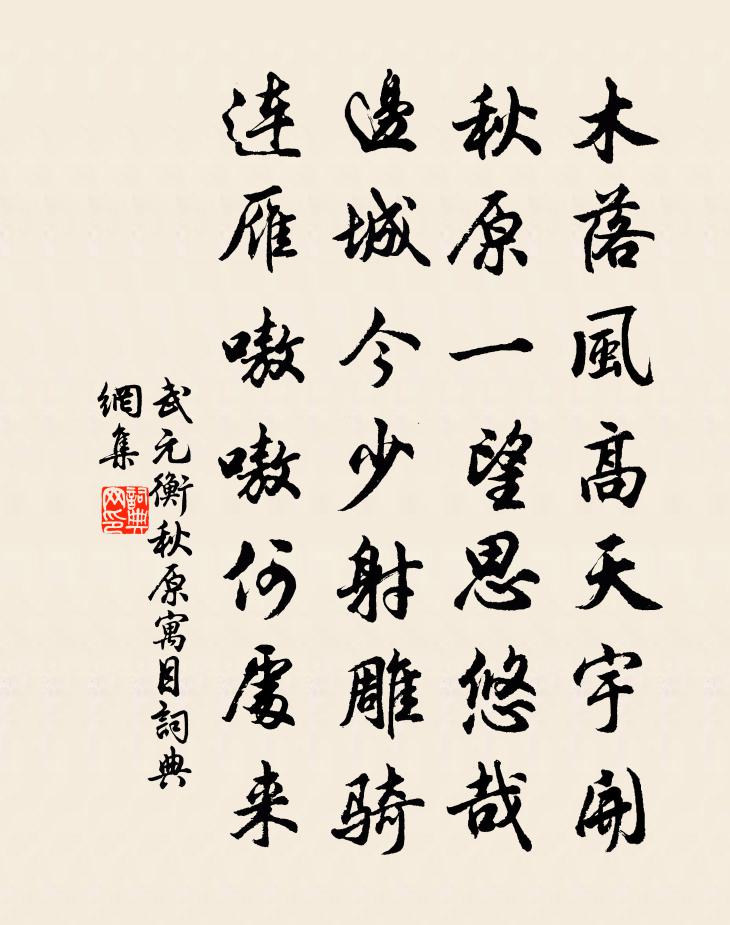 木落風高天宇開
秋原一望思悠哉
邊城今少射雕騎
连雁嗷嗷何處来
武元衡秋原寓目詞典
網集
詞典
网印